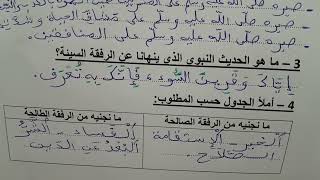 - صبره صلى الله عليه وسلم على
- صبره صلى الله عليه وسلم على المنافقين.
3 – ما هو الحديث النبوي الذي ينهانا عن الرفقة السيئة؟
إياك وقرين السوء فإنك به تعرف.
4 – أملأ الجدول حسب المطلوب:
ما نجنيه من الرفقة الصالحة
ما نجنيه من الرفقة الطالحة
الخير – الاستقامة
الصلاح.
الفساد – الشر
البعد عن الدين.